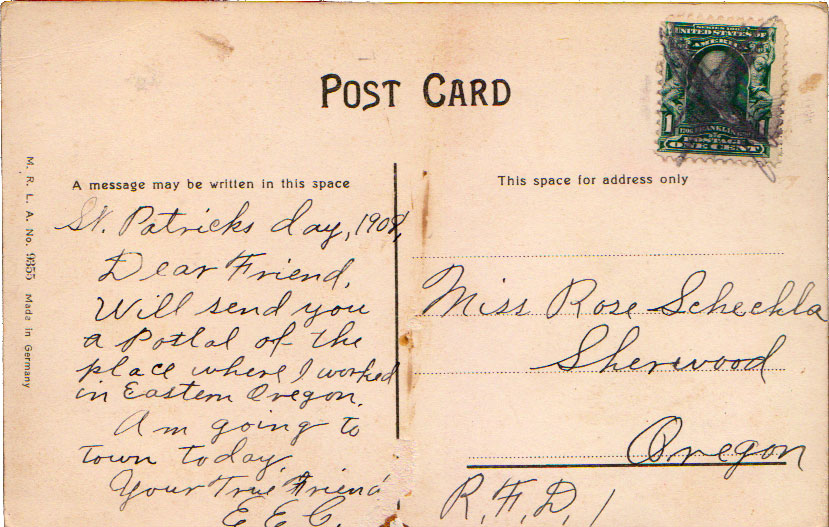 POST CARD
SERIES 1902
UNITED STATES OF
AMERICA
1 FRANKLIN 1
POSTAGE
ONE CENT
M. R. L. A. No. 9355 Made in Germany
A message may be written in this space
St. Patricks day, 1908,
Dear Friend,
Will send you
a Postal of the
place where I worked
in Eastern Oregon.
Am going to
town today
Your True Friend
E. E. C.
This space for address only
Miss Rose Schechla
Sherwood
Oregon
R. F. D. 1